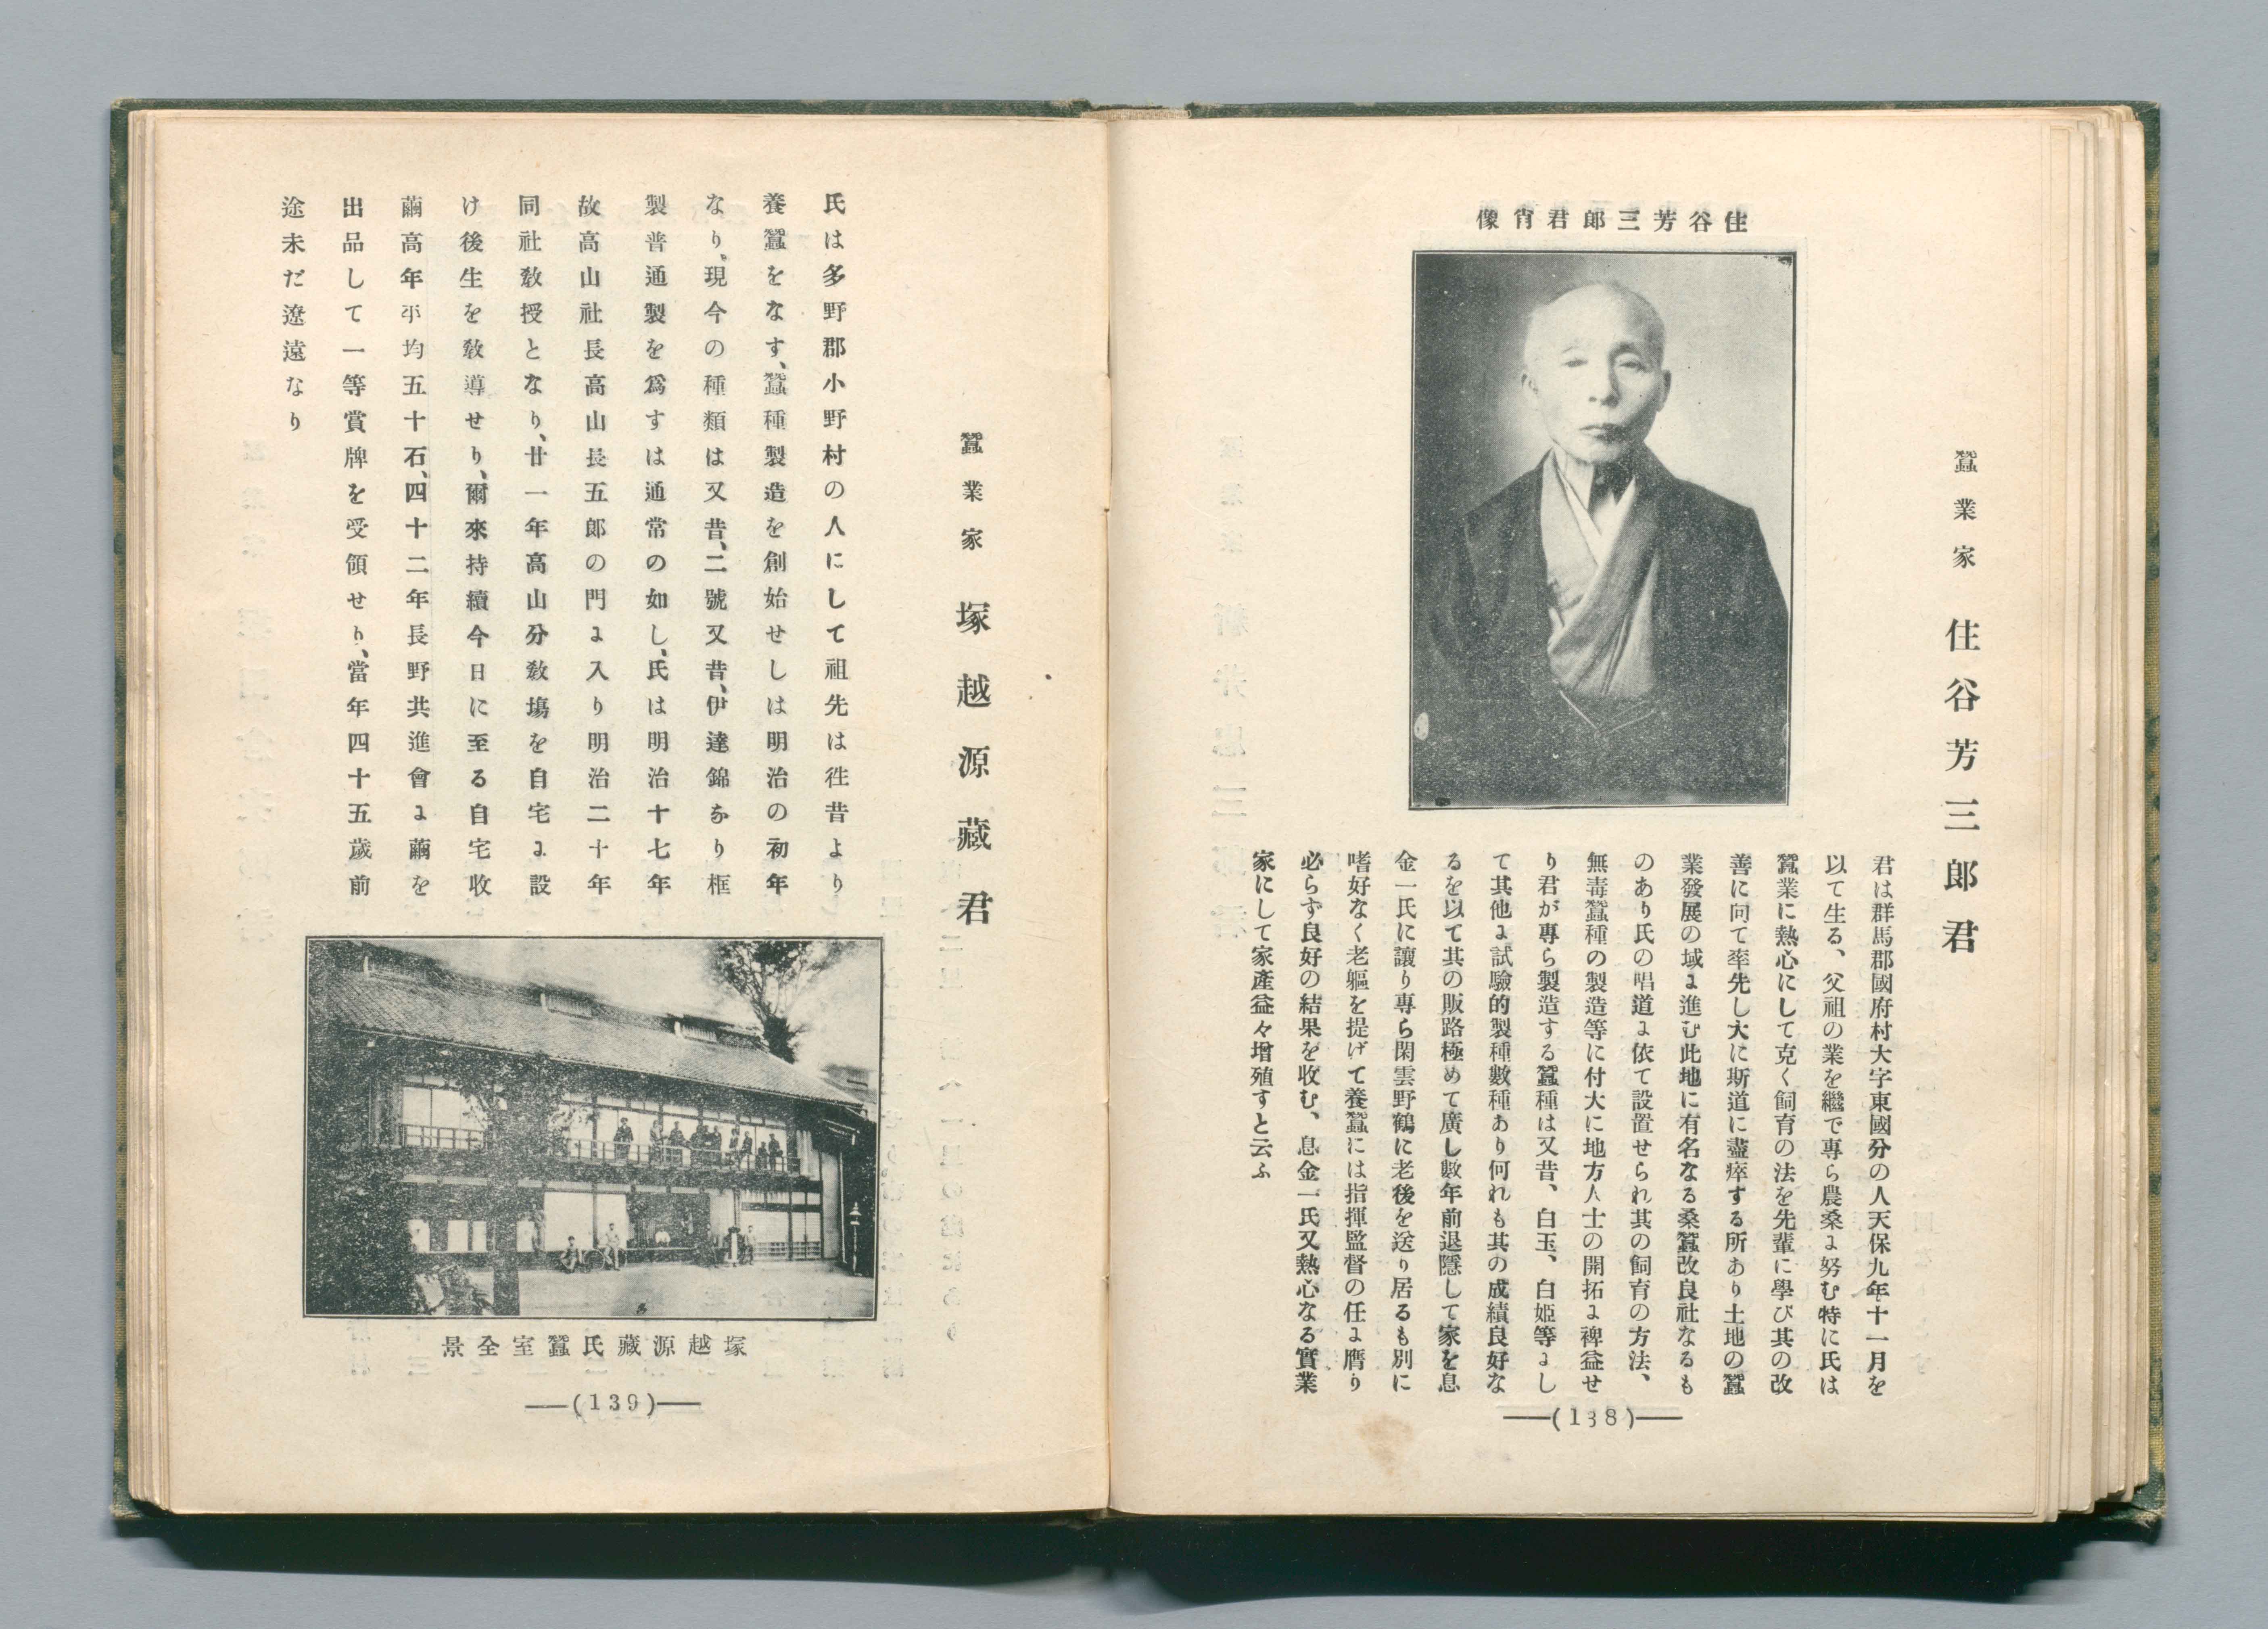 蠶業家 住谷芳三郎君
住谷芳三郎君肖像
君は群馬郡國府村大字東國分の人天保九年十一月を
以て生る、父祖の業を繼で專ら農桑に努む特に氏は
蠶業に熱心にして克く飼育の法を先輩に學び其の改
善に向て率先し大に斯道に盡瘁する所あり土地の蠶
業發展の域に進む此地に有名なる桑蠶改良社なるも
のあり氏の唱道に依て設置せられ其の飼育の方法、
無毒蠶種の製造等に付大に地方人士の開拓に裨益せ
り君が專ら製造する蠶種は又昔、白玉、白姫等にし
て其他に試驗的製種數種あり何れも其の成績良好な
るを以て其の販路極めて廣し數年前退隱して家を息
金一氏に讓り專ら閑雲野鶴に老後を送り居るも別に
嗜好なく老軀を提げて養蠶には指揮監督の任に膺り
必らず良好の結果を收む、息金一氏又熱心なる實業
家にして家產益々增殖すと云ふ
(138)
蠶業家 塚越源藏君
氏は多野郡小野村の人にして祖先は徃昔より
養蠶をなす、蠶種製造を創始せしは明治の初年
なり、現今の種類は又昔、二號又昔、伊達錦なり框
製普通製を爲すは通常の如し、氏は明治十七年
故高山社長高山長五郎の門に入り明治二十年
同社敎授となり、廿一年高山分敎塲を自宅に設
け後生を敎導せり、爾來持續今日に至る自宅收
繭高年平均五十石、四十二年長野共進會に繭を
出品して一等賞牌を受領せり、當年四十五歲前
途未だ遼遠なり
塚越源藏氏蠶室全景
(139)